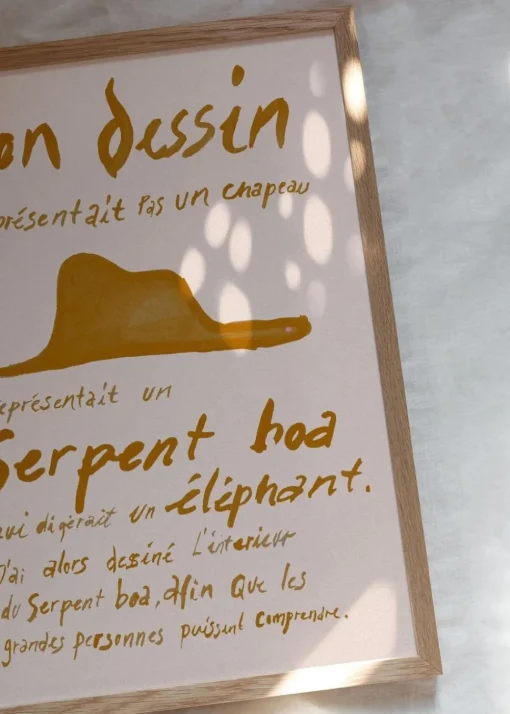 on dessin
présentait Pas un chapeau
eprésentait un
Serpent boa
qui digérait un éléphant.
J'ai alors dessiné L'interieur
du Serpent boa, Afin Que les
grandes personnes puissent comprendre.